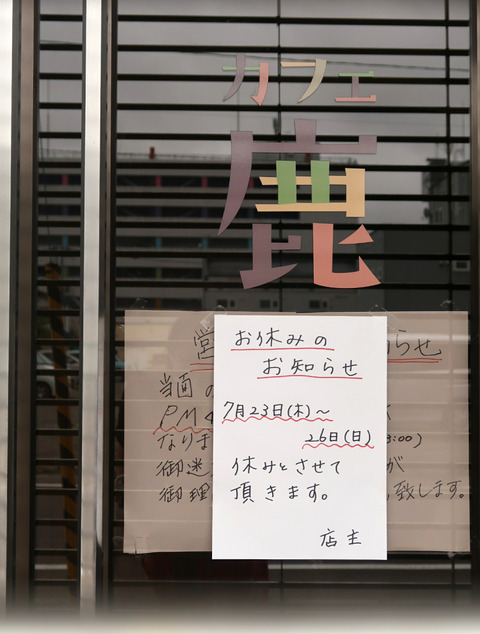 カフェ
鹿
お休みの
お知らせ
7月23日(木)～
26日(日)
休みとさせて
頂きます。
店主
営
らせ
当面の
PM
なりま
:00)
御迷
が
御理
致します。